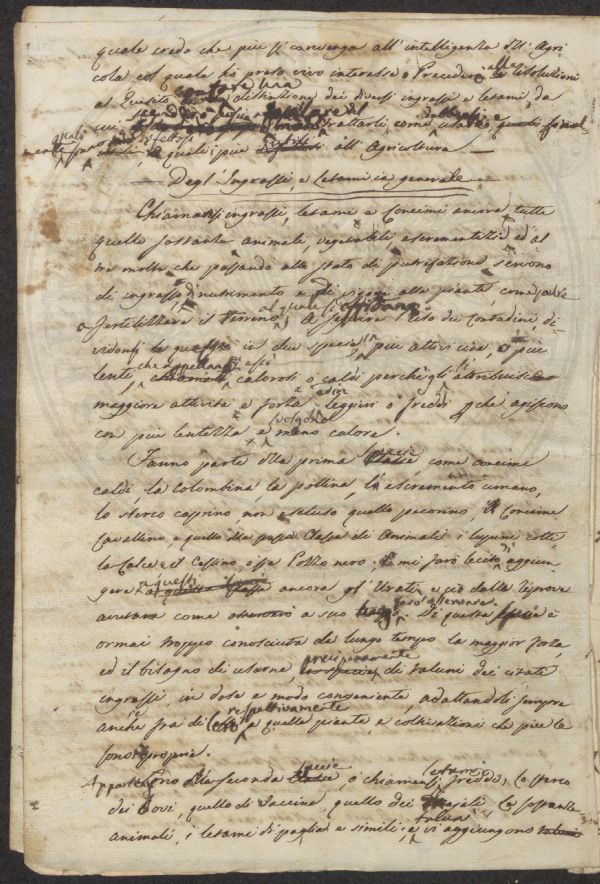 quale credo che più si convenga all'intelligenza dell'Agri
cola col quale ho preso vivo interesse. Precederò alla soluzione
al Quesito con fare una distinzione dei diversi ingrassi e letami, da
cui trattarli, come
e quali i più all'Agricoltura
Degl'Ingrassi, e Letami in generale
Chiamansi ingrassi, letame e Concimi ancora tutte
quelle sostanze animali, vegetabili escrementizie ed al
tre molte che passando allo stato di putrefazione servono
di ingrasso, di nutrimento e di vigore alle piante, come pure
a fertilizzare il terreno, al quale si affidano. A seguire l'uso dei Contadini, di-
vidonsi le in due specie più attivi cioè, e più
lenti, che appellansi calorosi o caldi perchè gli attribuiscono
maggiore attività e forza, ed in leggieri o freddi che agiscono
con più lentezza e meno calore.
Fanno parte della prima specie come concimi
caldi, la Colombina, la pollina, l'escremento umano,
lo sterco caprino non escluso quello pecorino, il Concime
Cavallino, e quello della Classe di Animali i lupini cotti,
la Calce ed il Cessino, o sia Pozzo nero; e mi farò lecito di aggiun-
gere a questi ancora gl'Urati, e ciò dalle riprove
avutane come a suo luogo farò osservare. Di questa specie è
ormai troppo conosciuta da lungo tempo la maggior forza
ed il bisogno di usarne, precipuamente di taluni dei citati
ingrassi, in dose e modo conveniente, adattandoli sempre
anche fra di essi respettivamente a quelle piante, e coltivazioni che più le
sono proprie.
Appartengono alla seconda specie, o chiamansi letami freddi, lo sterco
dei Bovi, quello di Vaccine, quello dei Majali, le sostanze
animali, i letami di paglia e simili, e vi aggiungono